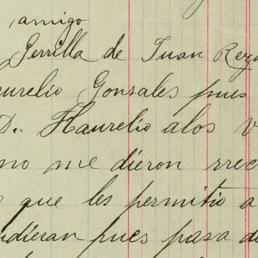 amigo
Gerrilla de Juan Rey
aurelio Gonsales pues
D. Haurelio alos V
no me dieron rrec
que les permitio a
udieran pues pasa de